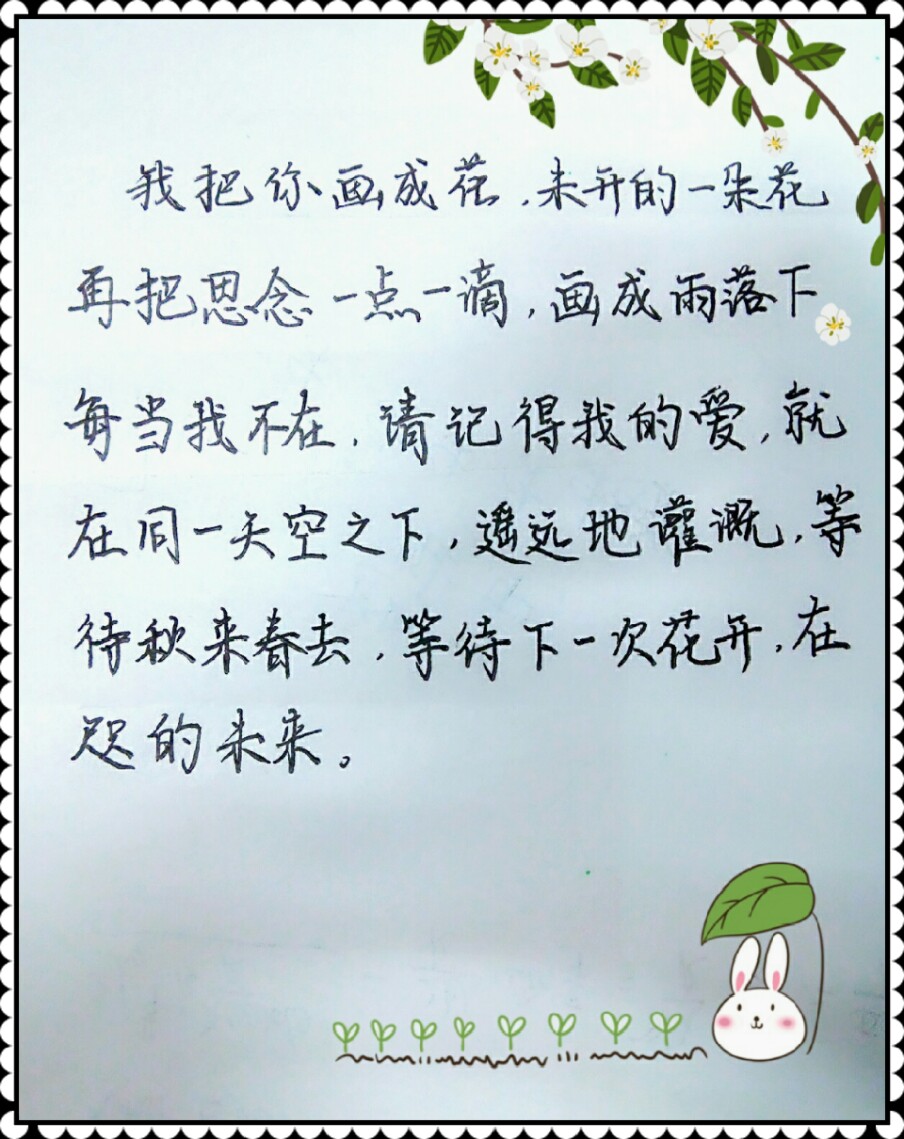 我把你画成花,未开的一朵花
再把思念一点一滴,画成雨落下
每当我不在,请记得我的爱,就
在同一天空之下,遥远地灌溉,等
待秋来春去,等待下一次花开,在
咫的未来。